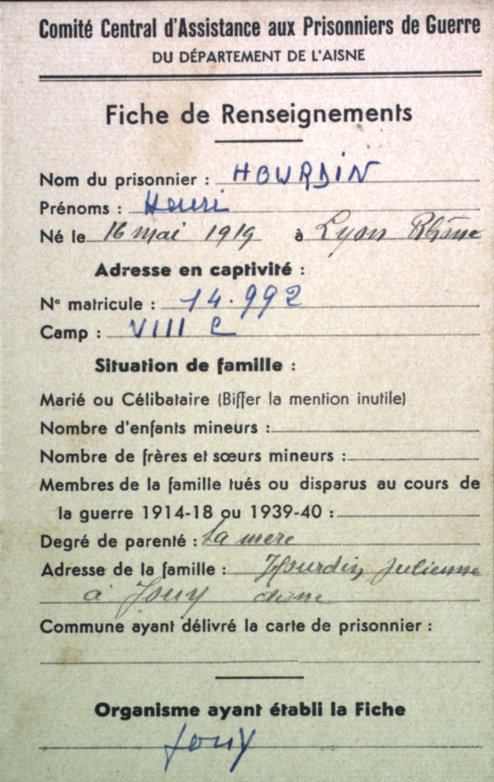 Comité Central d'Assistance aux Prisonniers de Guerre
DU DÉPARTEMENT DE L'AISNE
Fiche de Renseignements
Nom du prisonnier : HOURDIN
Prénoms : Henri
Né le 16 mai 1919 à Lyon Rhône
Adresse en captivité :
N° matricule : 14.992
Camp : VIII C
Situation de famille :
Marié ou Célibataire (Biffer la mention inutile)
Nombre d'enfants mineurs :
Nombre de frères et sœurs mineurs :
Membres de la famille tués ou disparus au cours de
la guerre 1914-18 ou 1939-40 :
Degré de parenté : sa mère
Adresse de la famille : Hourdin Julienne
à Jouy
Commune ayant délivré la carte de prisonnier :
Organisme ayant établi la Fiche
Jouy